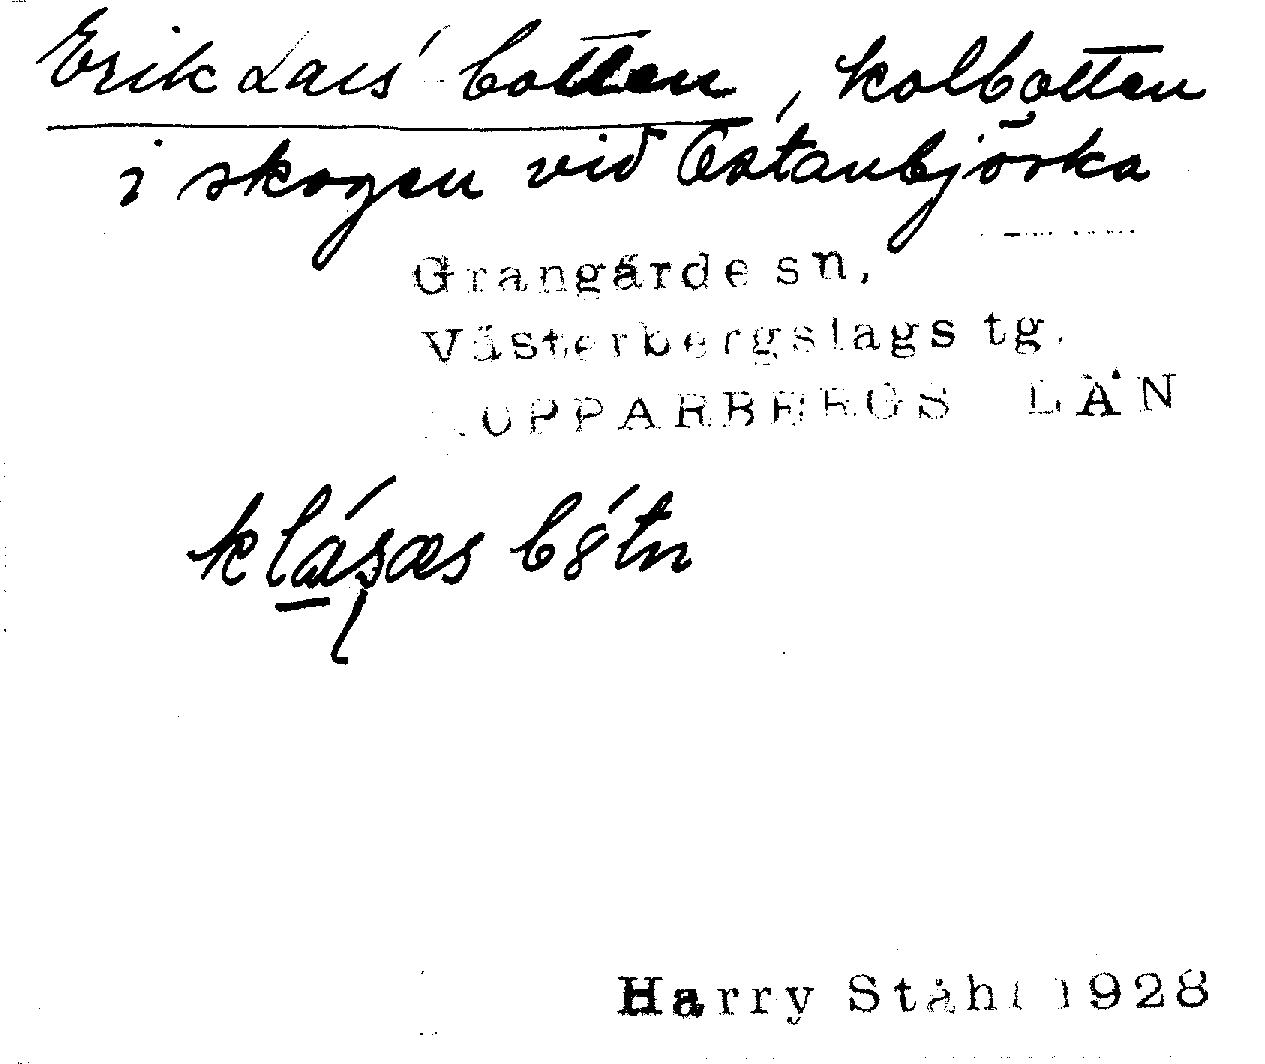 Erik Lars' botten, kolbotten
i skogen vid Östanbjörka
Grangärde sn,
Västerbergslags tg.
KOPPARBERGS LÄN
klásæs bótn
Harry Ståhl 1928